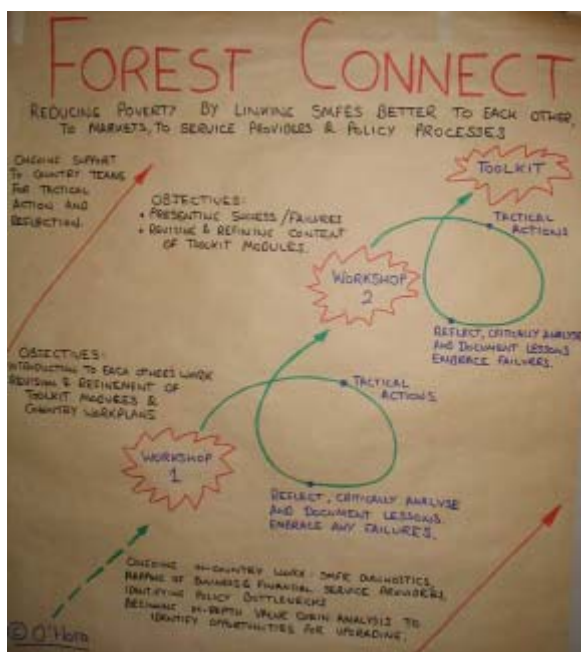 FOREST CONNECT
REDUCING POVERTY BY LINKING SMFES BETTER TO EACH OTHER,
TO MARKETS, TO SERVICE PROVIDERS & POLICY PROCESSES
ONGOING SUPPORT
TO COUNTRY TEAMS
FOR TACTICAL
ACTION AND
REFLECTION.
TOOLKIT
OBJECTIVES:
• PRESENTING SUCCESS/FAILURES
• REVISING & REFINING CONTENT
OF TOOLKIT MODULES.
TACTICAL
ACTIONS
WORKSHOP
2
REFLECT, CRITICALLY ANALYSE
AND DOCUMENT LESSONS
EMBRACE FAILURES.
OBJECTIVES:
INTRODUCTION TO EACH OTHERS WORK
REVISION & REFINEMENT OF
TOOLKIT MODULES &
COUNTRY WORKPLANS
TACTICAL
ACTIONS
WORKSHOP
1
REFLECT, CRITICALLY ANALYSE
AND DOCUMENT LESSONS.
EMBRACE ANY FAILURES.
ONGOING IN-COUNTRY WORK: SMFE DIAGNOSTICS,
MAPPING OF BUSINESS & FINANCIAL SERVICE PROVIDERS,
IDENTIFYING POLICY BOTTLENECKS
BEGINNING IN-DEPTH VALUE CHAIN ANALYSIS TO
IDENTIFY OPPORTUNITIES FOR UPGRADING.
© O'Hara